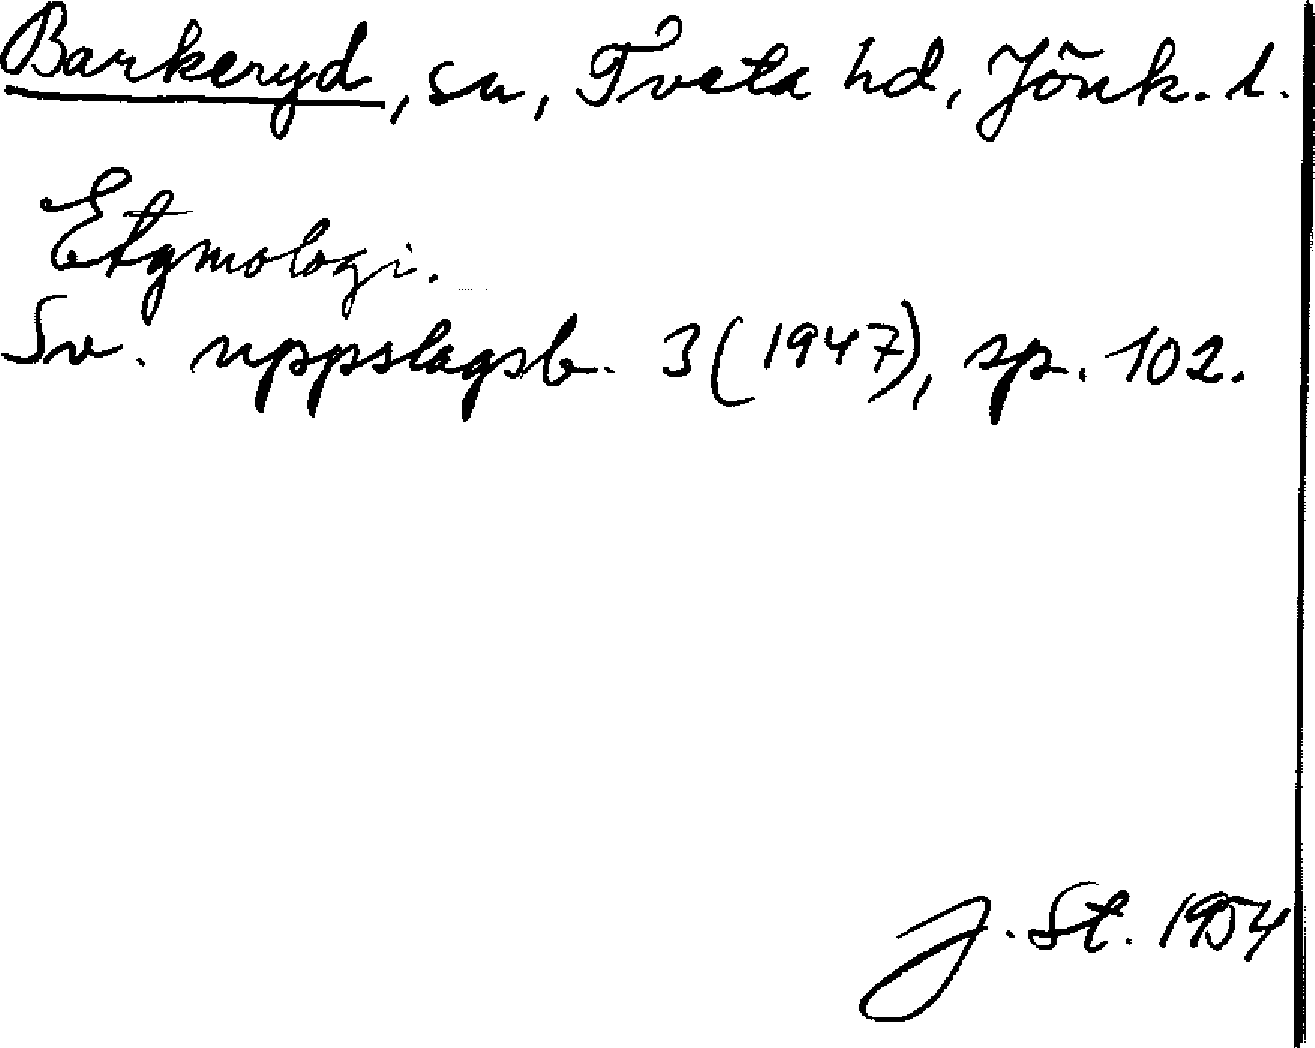 Barkeryd, sn, Tveta hd, Jönk. l.
Etymologi.
Sv. uppslagsb. 3 (1947), sp. 102.
J. St. 1954